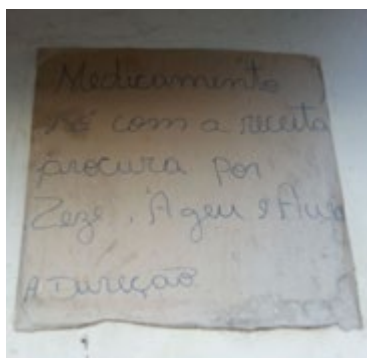 Medicamento
só com a receita
procura por
Zeze, Ageu e
A Direção